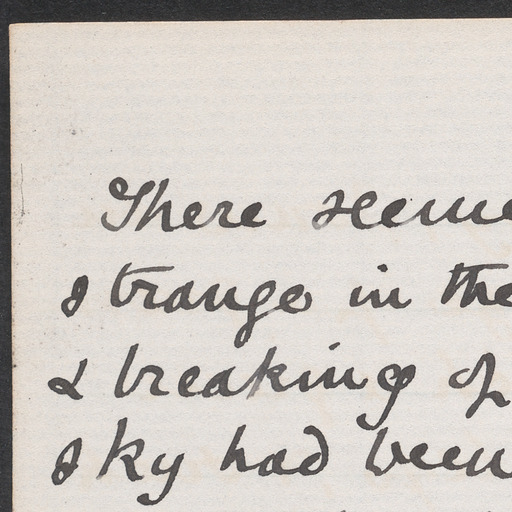 There seeme
strange in the
& breaking of
sky had been